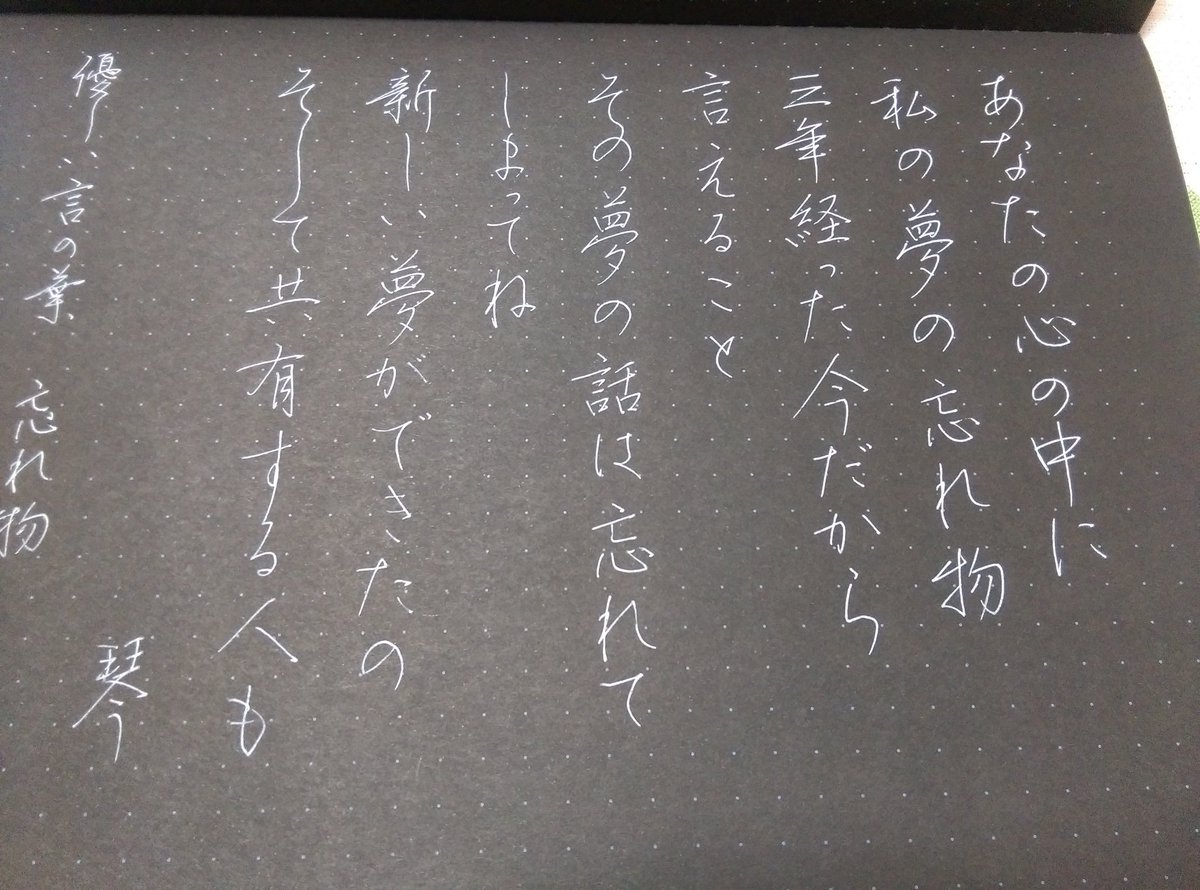 あなたの心の中に
私の夢の忘れ物
三年経った今だから
言えること
その夢の話は忘れて
しまってね
新しい夢ができたの
そして共有する人も
優しい言の葉 忘れ物
琴